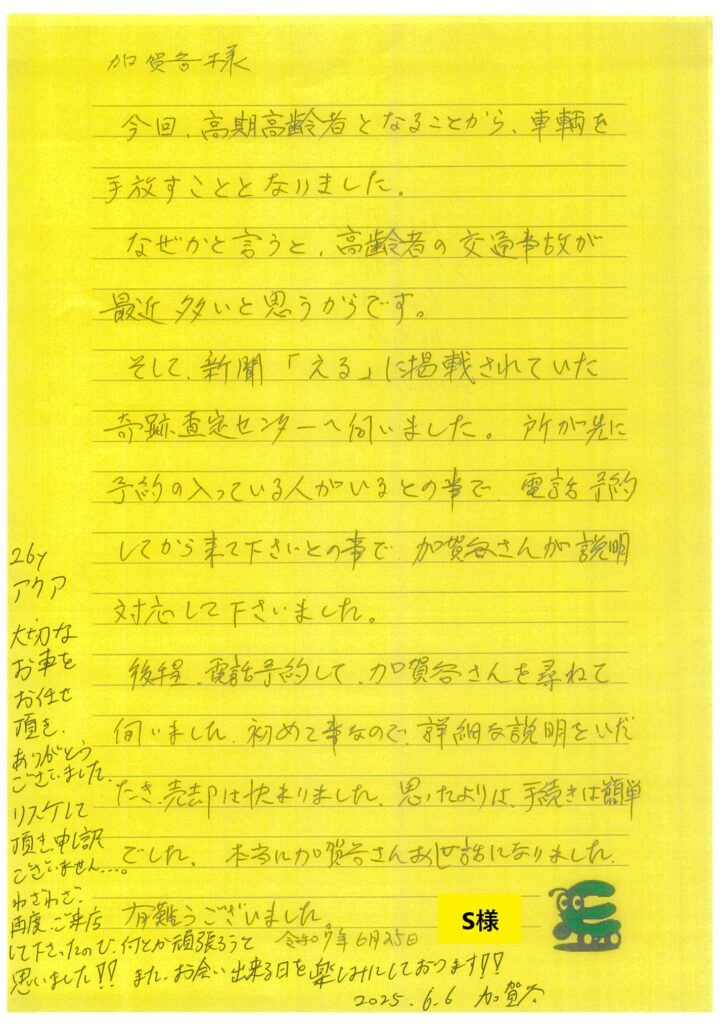 加賀谷様
今回、高期高齢者となることから、車輌を
手放すこととなりました。
なぜかと言うと、高齢者の交通事故が
最近多いと思うからです。
そして、新聞「える」に掲載されていた
奇跡査定センターへ伺いました。所が先に
予約の入っている人がいるとの事で、電話予約
してから来て下さいとの事で、加賀谷さんが説明
対応して下さいました。
後程、電話予約して、加賀谷さんを尋ねて
伺いました。初めて事なので、詳細な説明をいだ
たき、売却は決まりました。思ったよりは、手続きは簡単
でした。本当に加賀谷さんお世話になりました。
有難うございました。
令和7年6月25日
S様
26y
アクア
大切な
お車を
お任せ
頂き、
ありがとう
ございました。
リスケして
頂き申し訳
ございません…。
わざわざ、
再度、ご来店
して下さったので、何とか頑張ろうと
思いました!! また、お会い出来る日を楽しみにしております!!
2025.6.6 加賀谷